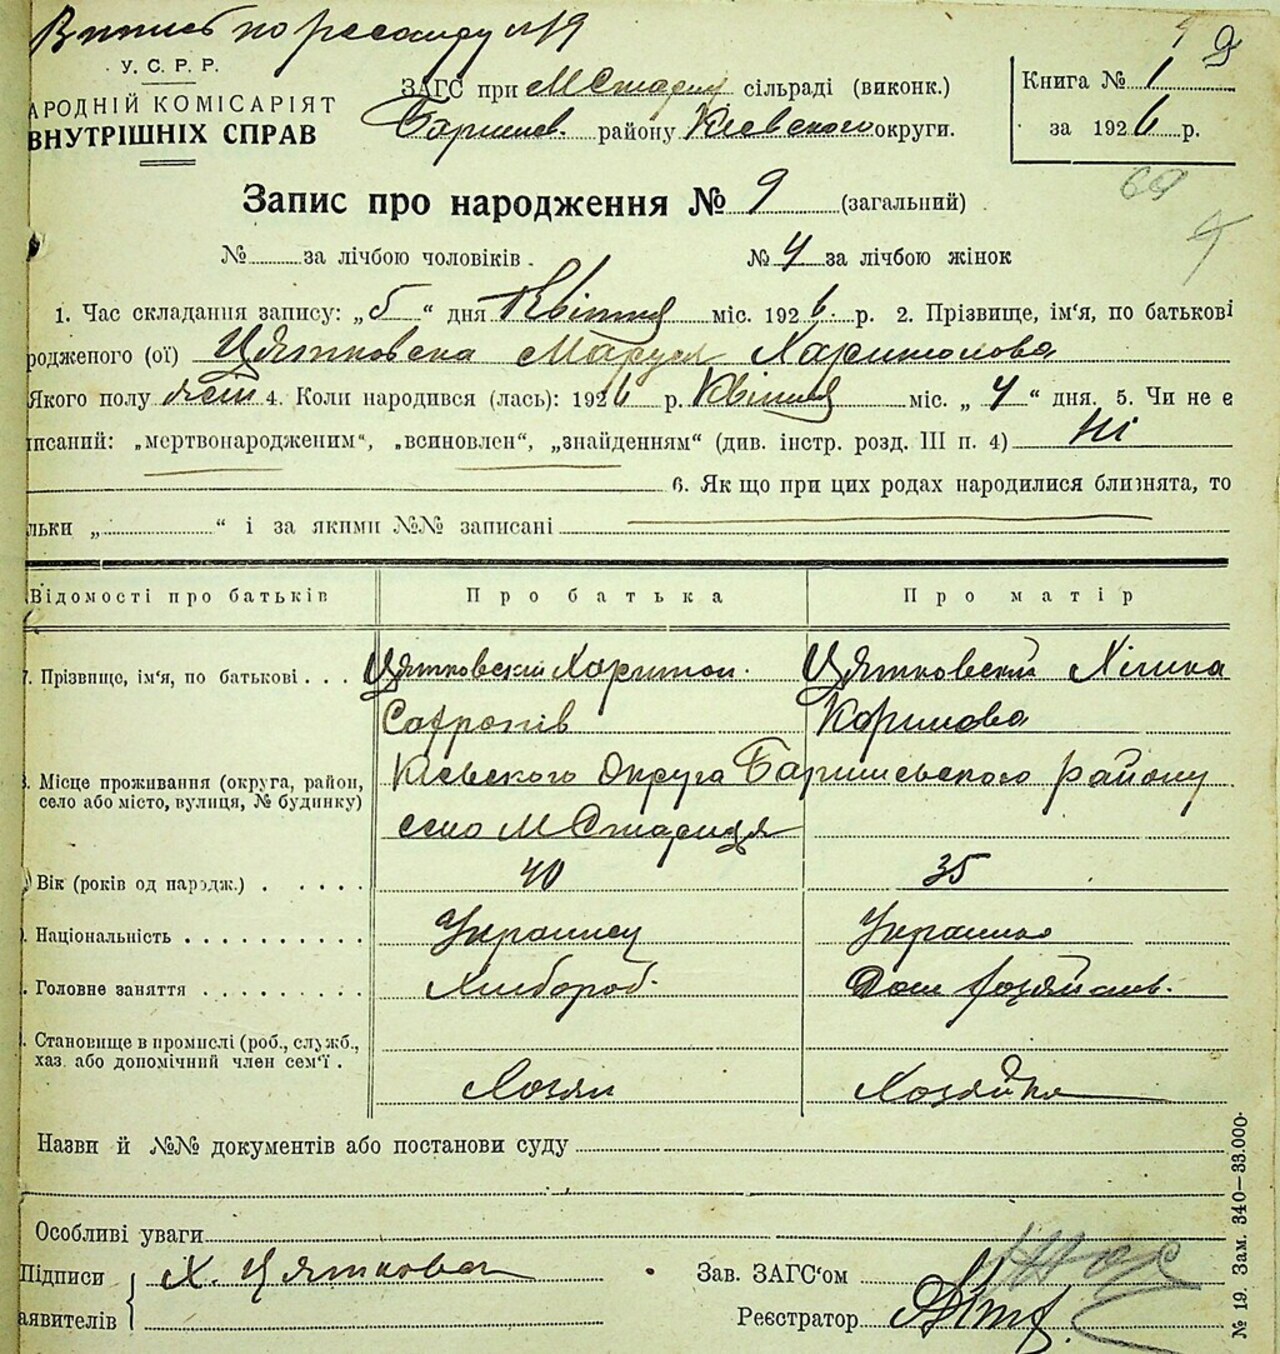 У. С. Р. Р.
АРОДНІЙ КОМІСАРІЯТ
ВНУТРІШНІХ СПРАВ
ЗАГС при М Стариц сільраді (виконк.)
Баришев. району Київского округи.
Книга № 1
за 1926 р.
Запис про народження № 9 (загальний)
69
4
№ за лічбою чоловіків.
№ 4 за лічбою жінок
1. Час складання запису: „5“ дня Квітня міс. 1926. р. 2. Прізвище, ім‘я, по батькові
родженого (ої) Цятковска Маруся Харитонова
Якого полу жін 4. Коли народився (лась): 1926 р. Квітня міс. „4“ дня. 5. Чи не є
писаний: „мертвонародженим“, „всиновлен“, „знайденням“ (див. інстр. розд. III п. 4) Ні
6. Як що при цих родах народилися близнята, то
льки „ “ і за якими №№ записані
Відомості про батьків Про батька Про матір
7. Прізвище, ім‘я, по батькові . . . Цятковский Харитон. Цятковский
Софронів
Київского Округа Баришевського району
8. Місце проживання (округа, район,
село або місто, вулиця, № будинку)
село М Стариця
Вік (років од народж.) . . . . . 40 35
Національність . . . . . . . . . . Українец Українка
Головне заняття . . . . . . . . . Хлібороб. Дом хозяйств.
Становище в промислі (роб., служб.,
хаз. або допомічний член сем‘ї .
Хозяин Хозяйка
Назви й №№ документів або постанови суду
Особливі уваги
Підписи Х. Цятковск
аявителів
Зав. ЗАГС‘ом
Реєстратор
№ 19. Зам. 340—33.000.